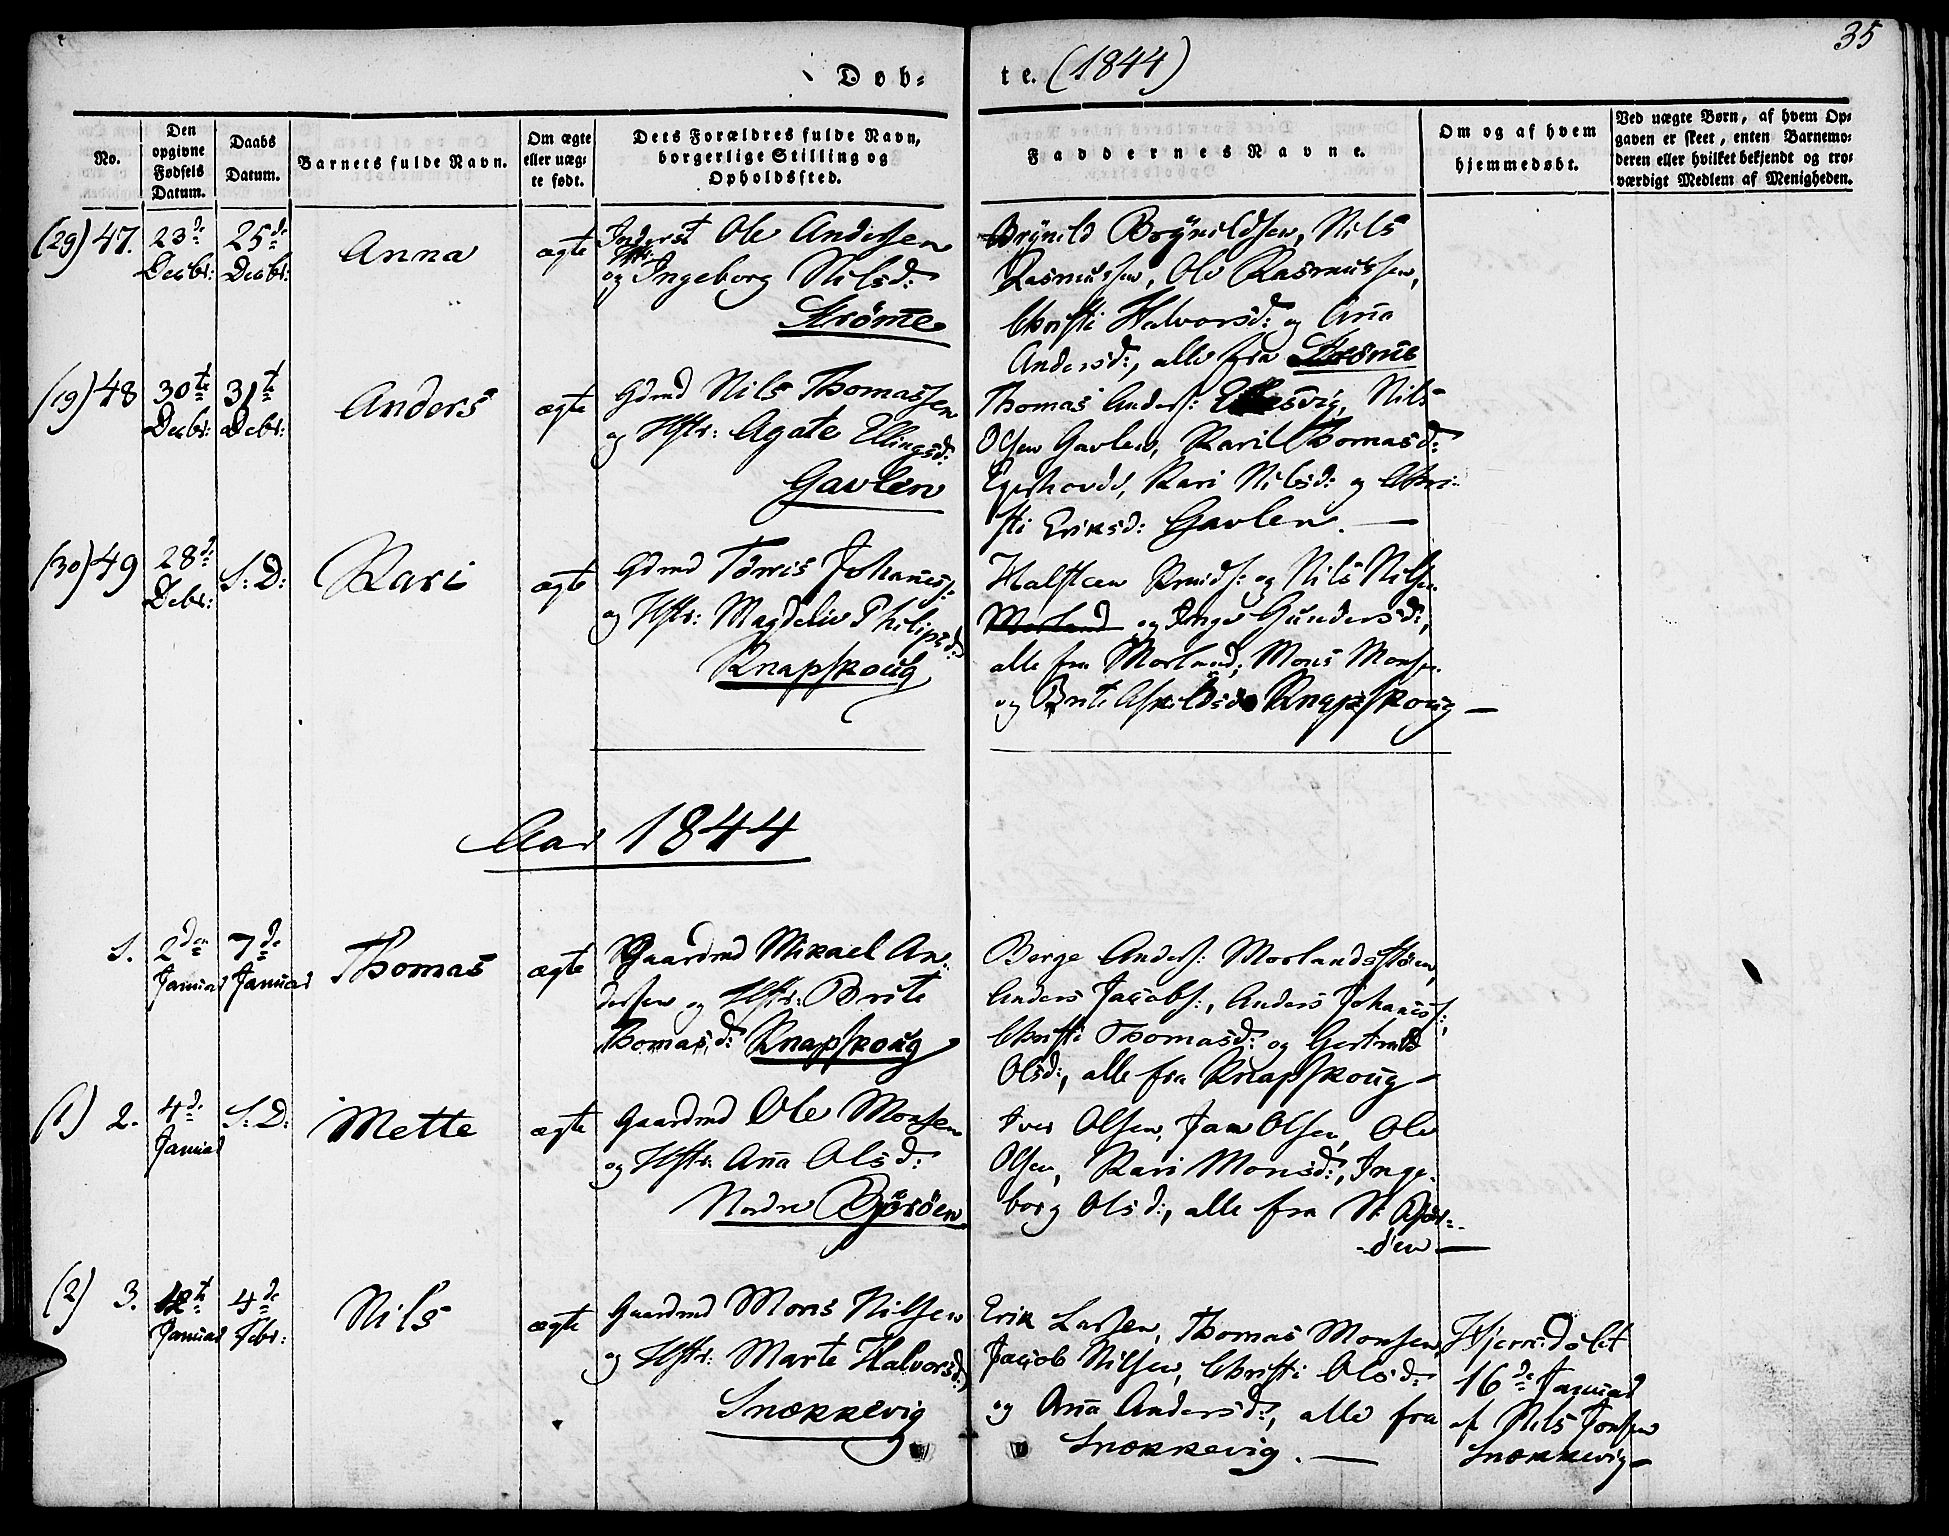 35
Døb- te. (1844)
No.
Den opgivne Fødsels Datum.
Daabs Datum.
Barnets fulde Navn.
Om ægte eller uæg- te født.
Dets Forældres fulde Navn, borgerlige Stilling og Opholdssted.
Faddernes Navne.
Om og af hvem hjemmedøbt.
Ved uægte Børn, af hvem Op- gaven er skeet, enten Barnemo- deren eller hvilket bekjendt og tro- værdigt Medlem af Menigheden.
(29) 47. 23de Decbr: 25de Decbr: Anna ægte
Inderst Ole Andersen
og Hstr: Ingeborg Nilsd:
Strømme
Brynild Brynildsen, Nils
Rasmussen, Ole Rasmussen,
Christi Halvorsd: og Anna
Andersd:, alle fra Strømme
(19) 48 30te Decbr: 31te Debr: Anders ægte
Gdmd Nils Thomassen
og Hstr: Agate Ellingsd:
Gavlen
Thomas Anders: Nils
Olsen Gavlen, Karil Thomasd:
Kari Nilsd: og Chri-
sti Eriksd: Gavlen. —
(30) 49 28de Debr: S: D: Kari ægte
Gdmd Tørris Johanes:
og Hstr: Magdeliv Philipsd:
Knapskoug
Halsteen Knuds: og Nils Nilsen
Morland og Inger Gundersd:,
alle fra Morland; Mons Monsen
og Brite Askildsd: Knapskoug —
Aar 1844
1. 2den Januar 7de Januar Thomas ægte
Gaardmd Mikael An-
dersen og Hstr: Brite
Thomasd: Knapskoug
Berge Anders: Morlandsstøen,
Anders Jacobs:, Anders Johanes:,
Christi Thomasd: og Gertrud
Olsd:, alle fra Knapskoug —
(1) 2. 4de Januar S: D: Mette ægte
Gaardmd Ole Monsen
og Hstr: Anna Olsd:
Nordre Bjørøen
Iver Olsen, Jan Olsen, Ole
Olsen, Kari Monsd:, Inge-
borg Olsd:, alle fra N: Bjør-
øen —
(2) 3. 12te Januar 4de Febr: Nils ægte
Gaardmd Mons Nilsen
og Hstr: Marte Halvorsd:
Snekkevig
Erik Larsen, Thomas Monsen,
Jacob Nilsen, Christi Olsd:
og Anna Andersd:, alle fra
Snekkevig. —
Hjemedøbt
16de Januar
af Nils Jonsen
Snekkevig —